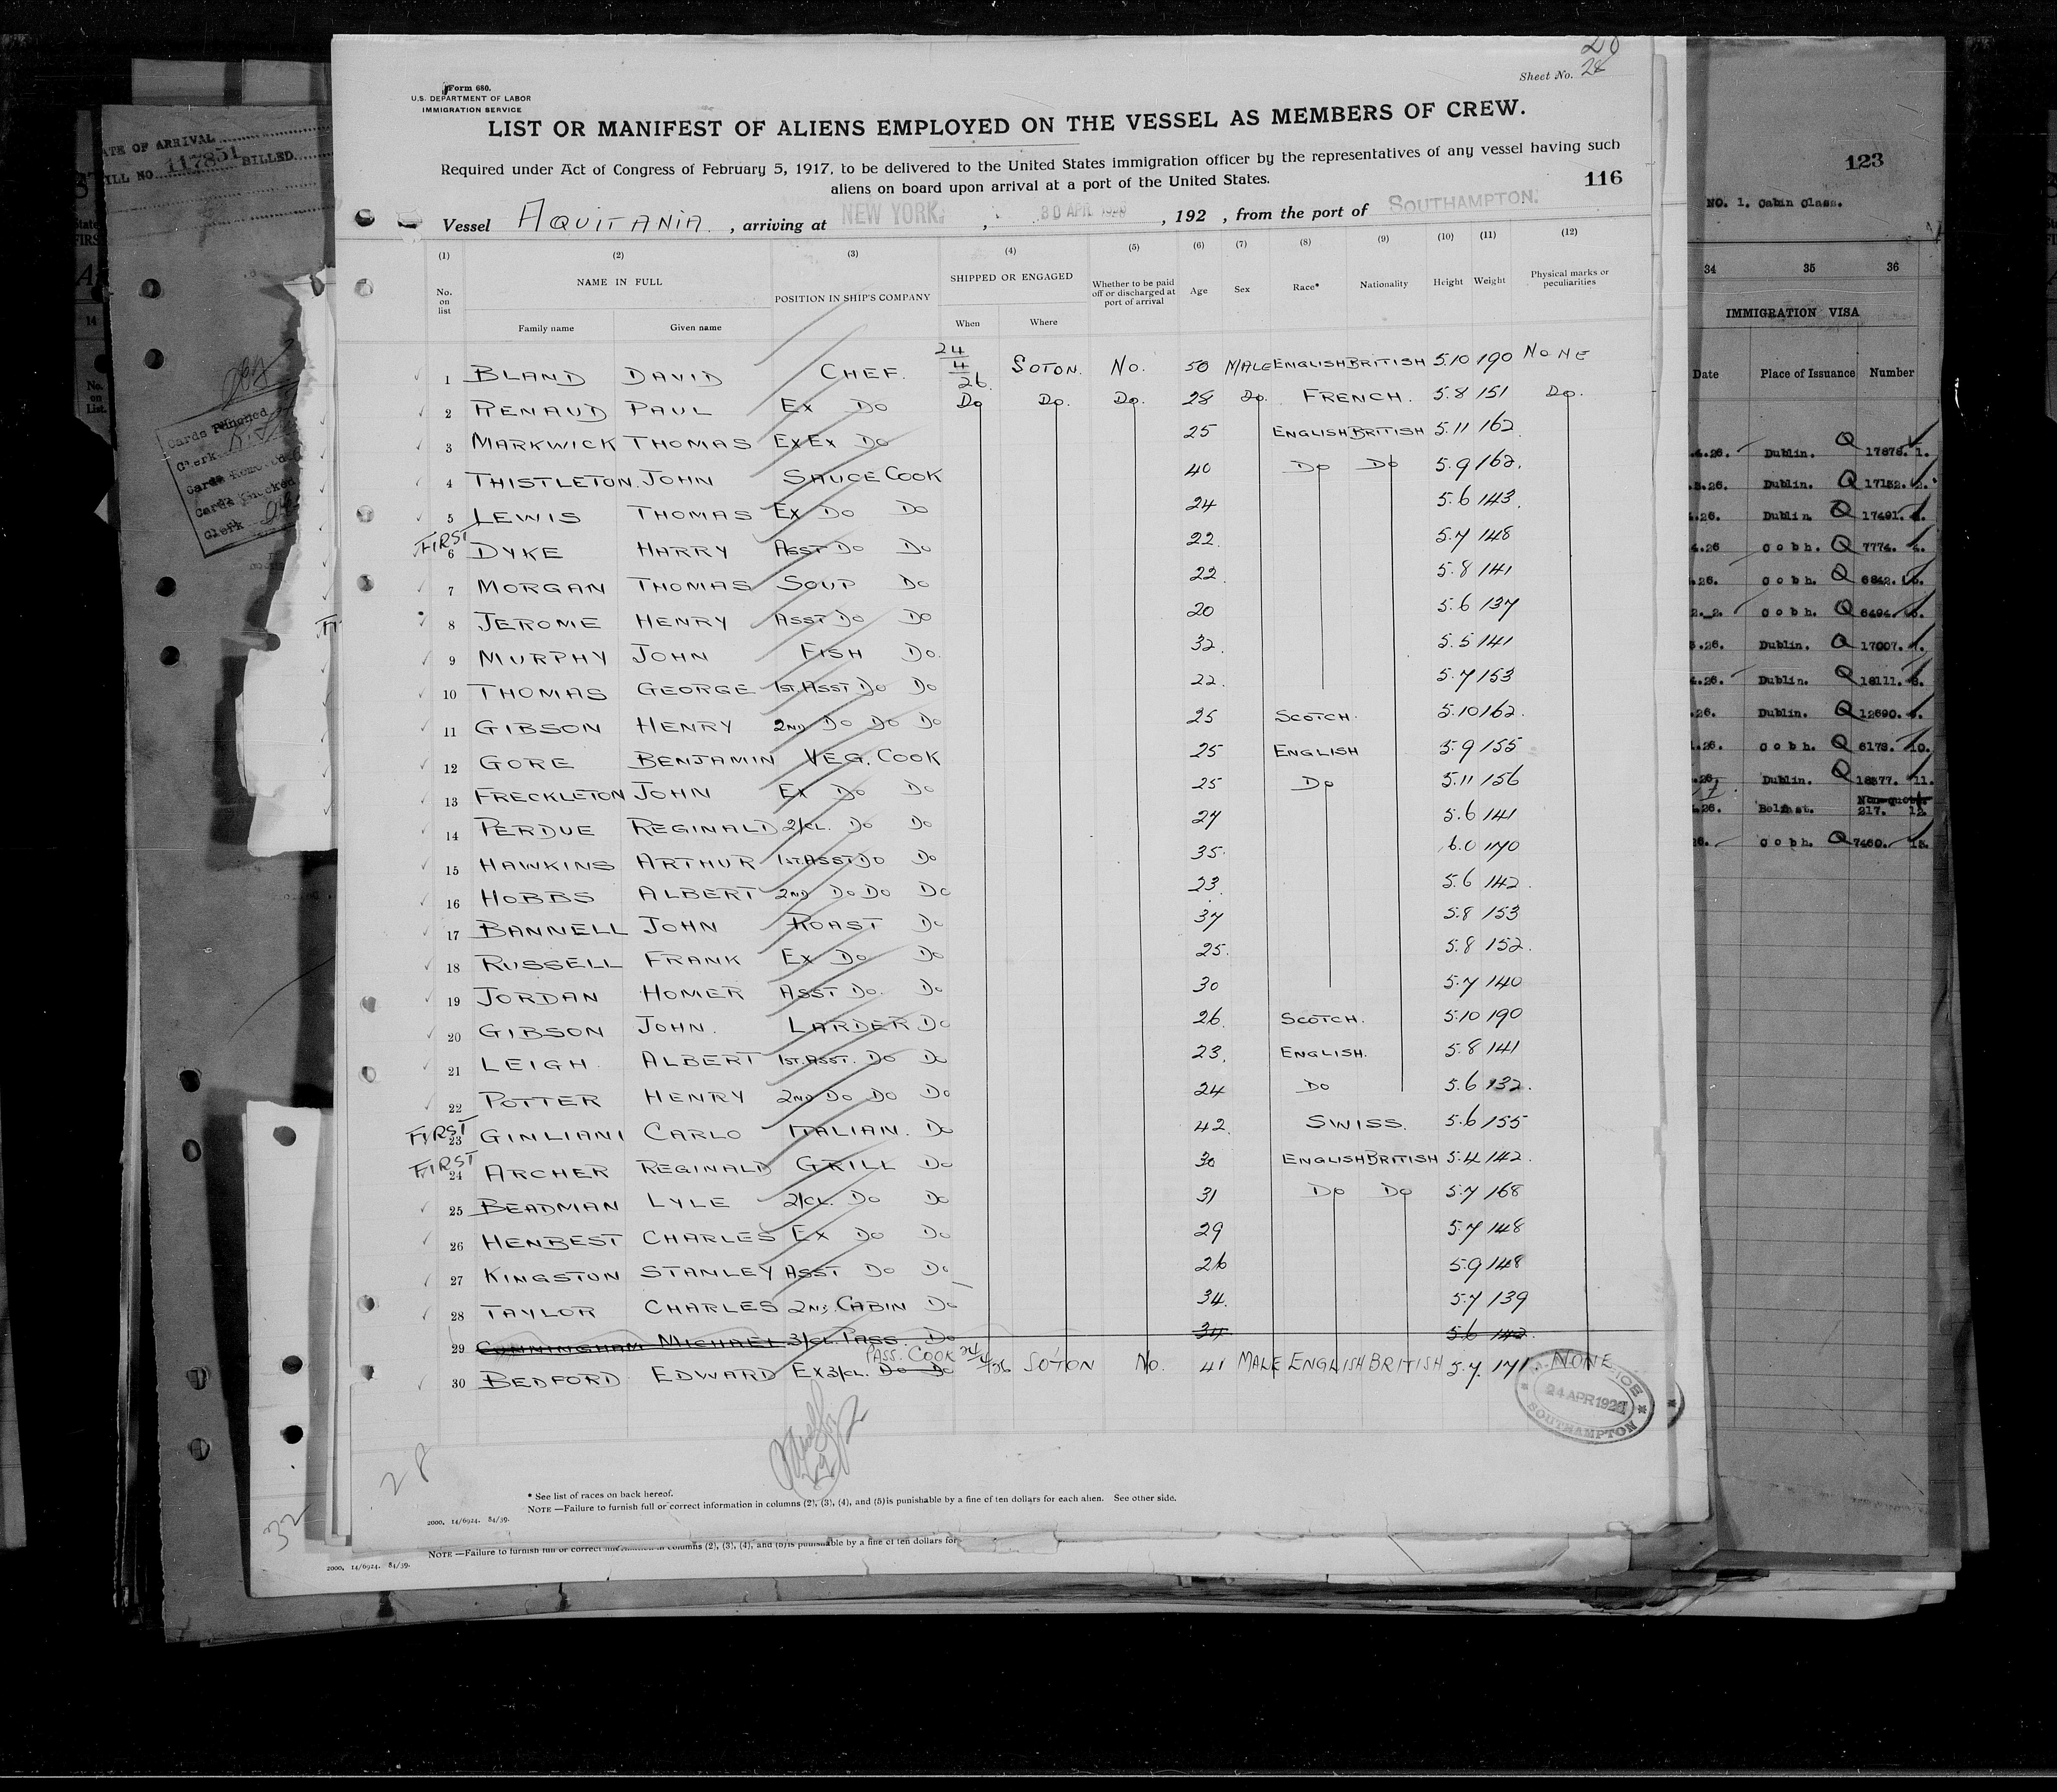 20
Sheet No. 28
Form 680.
U.S. DEPARTMENT OF LABOR
IMMIGRATION SERVICE
LIST OR MANIFEST OF ALIENS EMPLOYED ON THE VESSEL AS MEMBERS OF CREW.
Required under Act of Congress of February 5, 1917, to be delivered to the United States immigration officer by the representatives of any vessel having such
aliens on board upon arrival at a port of the United States.
116
Vessel AQUITANIA, arriving at NEW YORK, 30 APR 1926, 192 , from the port of SOUTHAMPTON.
(1) (2) (3) (4) (5) (6) (7) (8) (9) (10) (11) (12)
No. on list NAME IN FULL POSITION IN SHIP'S COMPANY SHIPPED OR ENGAGED Whether to be paid off or discharged at port of arrival Age Sex Race* Nationality Height Weight Physical marks or peculiarities
Family name Given name When Where
1 BLAND DAVID CHEF. 24/4 26. SOTON. No. 50 MALE ENGLISH BRITISH 5.10 190 NONE
2 RENAUD PAUL EX DO DO DO. DO. 28 DO. FRENCH. 5.8 151 DO.
3 MARKWICK THOMAS EX EX DO 25 ENGLISH BRITISH 5.11 162
4 THISTLETON. JOHN SAUCE COOK 40 DO DO 5.9 162.
5 LEWIS THOMAS EX DO DO 24 5.6 143.
FIRST 6 DYKE HARRY ASST DO DO 22. 5.7 148
7 MORGAN THOMAS SOUP DO 22. 5.8 141
8 JEROME HENRY ASST DO DO 20 5.6 137
9 MURPHY JOHN FISH DO. 32. 5.5 141
10 THOMAS GEORGE 1ST. ASST DO DO 22. 5.7 153
11 GIBSON HENRY 2ND DO DO DO 25 SCOTCH. 5.10 162.
12 GORE BENJAMIN VEG. COOK 25 ENGLISH 5.9 155
13 FRECKLETON JOHN EX DO DO 25 DO 5.11 156
14 PERDUE REGINALD 2/CL. DO DO 27 5.6 141
15 HAWKINS ARTHUR 1ST. ASST DO DO 35. 6.0 170
16 HOBBS ALBERT 2ND DO DO DO 23. 5.6 142.
17 BANNELL JOHN ROAST DO 37 5.8 153
18 RUSSELL FRANK EX DO DO 25. 5.8 152.
19 JORDAN HOMER ASST DO. DO 30 5.7 140
20 GIBSON JOHN. LARDER DO 26. SCOTCH. 5.10 190
21 LEIGH ALBERT 1ST. ASST. DO DO 23. ENGLISH. 5.8 141
22 POTTER HENRY 2ND DO DO DO 24 DO 5.6 132.
FIRST 23 GINLIANI CARLO ITALIAN. DO 42. SWISS. 5.6 155
FIRST 24 ARCHER REGINALD GRILL DO 30 ENGLISH BRITISH 5.4 142.
25 BEADMAN LYLE 2/CL. DO DO 31 DO DO 5.7 168
26 HENBEST CHARLES EX DO DO 29 5.7 148
27 KINGSTON STANLEY ASST DO DO 26 5.9 148
28 TAYLOR CHARLES 2ND. CABIN DO 34. 5.7 139
29 CUNNINGHAM MICHAEL 3/CL. PASS. DO 34 5.6 142.
PASS. COOK
30 BEDFORD EDWARD EX 3/CL. DO DO 24/4/26 SOTON No. 41 MALE ENGLISH BRITISH 5.7. 171. NONE
24 APR 1926
SOUTHAMPTON
28
* See list of races on back hereof.
NOTE —Failure to furnish full or correct information in columns (2), (3), (4), and (5) is punishable by a fine of ten dollars for each alien. See other side.
2000, 14/6924. 84/39.
32
NOTE —Failure to furnish full or correct information in columns (2), (3), (4), and (5) is punishable by a fine of ten dollars for
2000, 14/6924. 84/39.
ATE OF ARRIVAL
LL NO. 117851 BILLED
Cards Punched
Clerk
Cards Removed
Cards Checked
Clerk
14
No. on List.
123
NO. 1. Cabin Class.
34 35 36
IMMIGRATION VISA
Date Place of Issuance Number
.4.26. Dublin. Q 17878. 1.
.3.26. Dublin. Q 17152. 2.
.26. Dublin. Q 17491. 3.
.4.26 Cobh. Q 7774. 4.
.26. Cobh. Q 6842. 5.
Cobh. Q 6494. 6.
.26. Dublin. Q 17007. 7.
.26. Dublin. Q 18111. 8.
.26. Dublin. Q 12690. 9.
.26. Cobh. Q 8173. 10.
.26. Dublin. Q 18377. 11.
.26. Belfast. Non-quota 217. 12.
26. Cobh. Q 7460. 13.